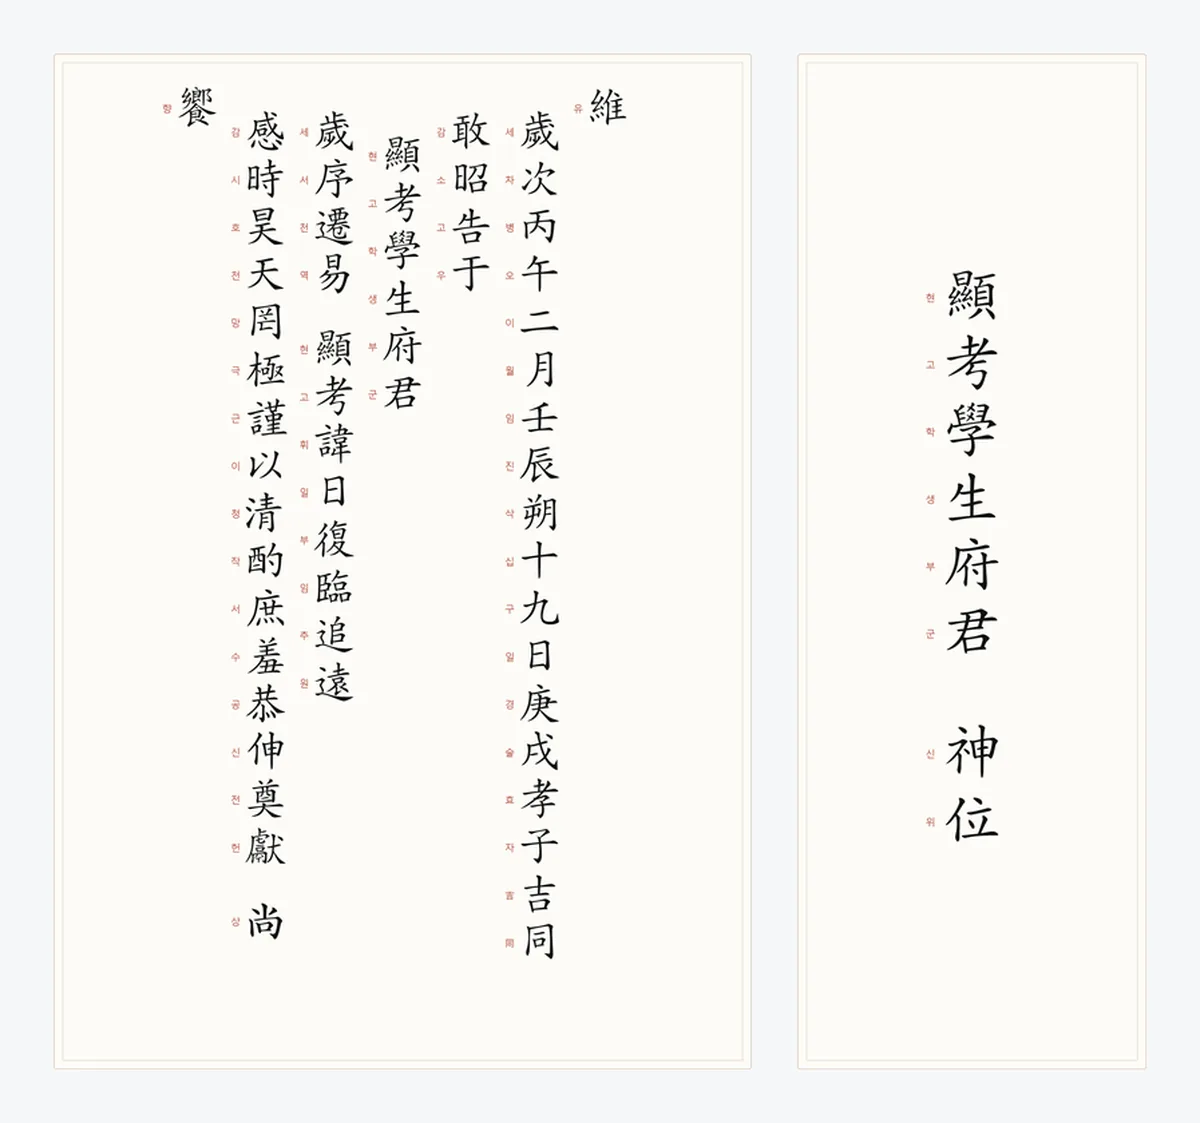 維
유
歲次丙午二月壬辰朔十九日庚戌孝子吉同
세자병오이월임진삭십구일경술효자吉同
敢昭告于
감소고우
顯考學生府君
현고학생부군
歲序遷易 顯考諱日復臨追遠
세서천역 현고휘일부임추원
感時昊天罔極謹以清酌庶羞恭伸奠獻 尚
감시호천망극근이청작서수공신전헌 상
饗
향
顯考學生府君 神位
현고학생부군 신위